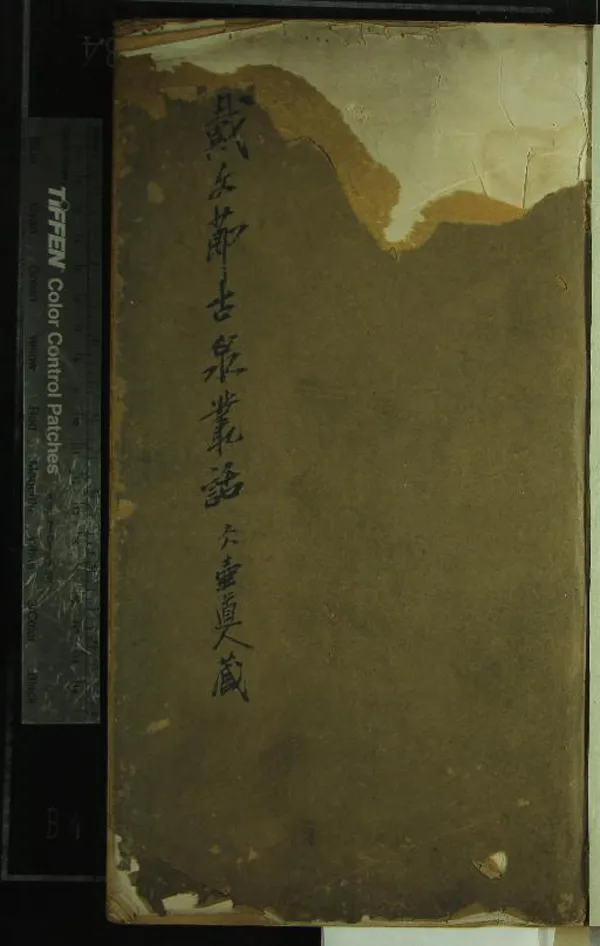 戴文節古泉叢話 壺眞人藏
TIFFEN Color Control Patches
Cyan Green Yellow Red Magenta White 3/Color Black